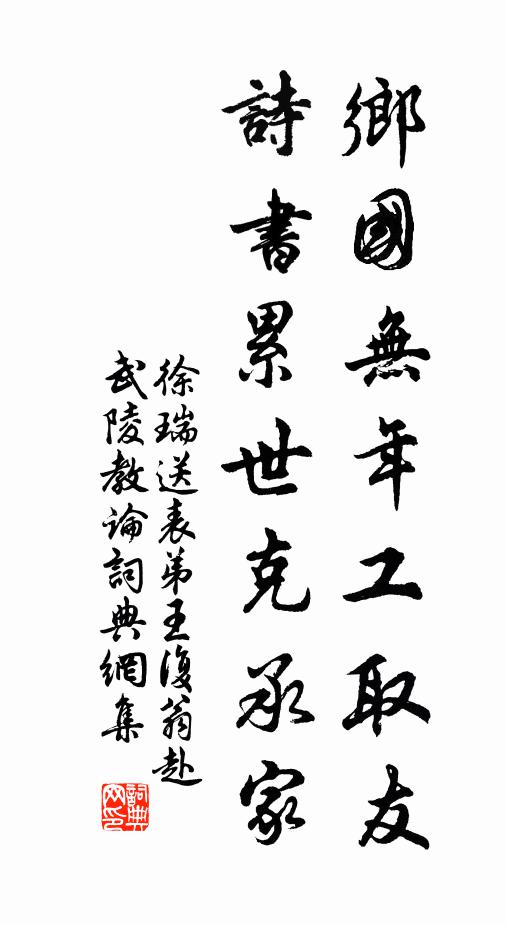 鄉國無年工取友
詩書累世克承家
徐瑞送表弟王復翁赴
武陵教論詞典網集
詞典
网印